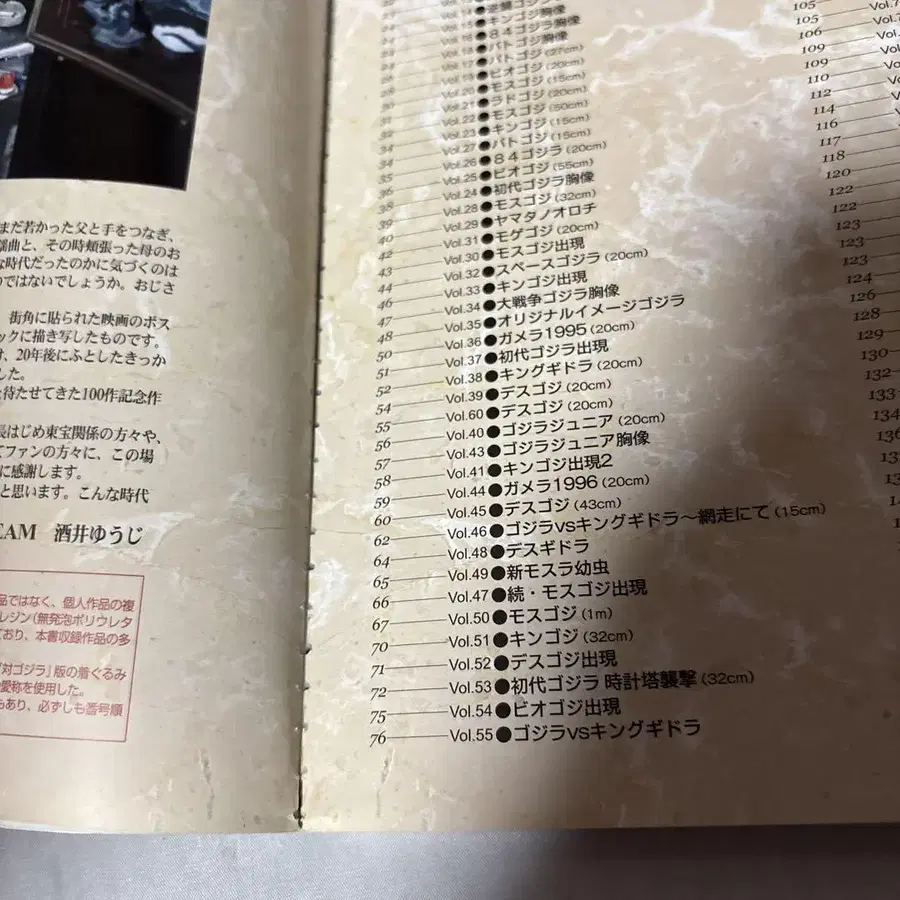 まだ若かった父と手をつなぎ、
謡曲と、その時頬張った母のお
な時代だったのかに気づくのは
のではないでしょうか。おじさ
街角に貼られた映画のポス
ックに描き写したものです。
け、20年後にふとしたきっか
した。
を待たせてきた100作記念作
長はじめ東宝関係の方々や、
てファンの方々に、この場
に感謝します。
と思います。こんな時代
EAM 酒井ゆうじ
品ではなく、個人作品の複
レジン(無発泡ポリウレタ
ており、本書収録作品の多
対ゴジラ」版の着ぐるみ
愛称を使用した。
もあり、必ずしも番号順
キンゴジ胸像
Vol.16●84ゴジラ胸像
Vol.17●バトゴジ(27cm)
Vol.19●ビオゴジ(20cm)
Vol.20●モスゴジ(15cm)
30 Vol.21●ラドゴジ(20cm)
31 Vol.22●モスゴジ(50cm)
32 Vol.23●キンゴジ(15cm)
34 Vol.27●バトゴジ(15cm)
34 Vol.26●84ゴジラ(20cm)
35 Vol.25●ビオゴジ(55cm)
36 Vol.24●初代ゴジラ胸像
38 Vol.28●モスゴジ(32cm)
39 Vol.29●ヤマタノオロチ
40 Vol.31●モゲゴジ(20cm)
42 Vol.30●モスゴジ出現
43 Vol.32●スペースゴジラ(20cm)
44 Vol.33●キンゴジ出現
46 Vol.34●大戦争ゴジラ胸像
47 Vol.35●オリジナルイメージゴジラ
48 Vol.36●ガメラ1995(20cm)
50 Vol.37●初代ゴジラ出現
51 Vol.38●キングギドラ(20cm)
52 Vol.39●デスゴジ(20cm)
54 Vol.60●デスゴジ(20cm)
55 Vol.40●ゴジラジュニア(20cm)
56 Vol.43●ゴジラジュニア胸像
57 Vol.41●キンゴジ出現2
58 Vol.44●ガメラ1996(20cm)
59 Vol.45●デスゴジ(43cm)
60 Vol.46●ゴジラVSキングギドラ〜網走にて(15cm)
62 Vol.48●デスギドラ
64 Vol.49●新モスラ幼虫
65 Vol.47●続・モスゴジ出現
66 Vol.50●モスゴジ(1m)
67 Vol.51●キンゴジ(32cm)
70 Vol.52●デスゴジ出現
71 Vol.53●初代ゴジラ 時計塔襲撃(32cm)
72 Vol.54●ビオゴジ出現
75 Vol.55●ゴジラVSキングギドラ
76
105 Vol.7
105 Vol.
106 Vol.
109 Vol.
109 Vol.
110 Vol.
112 Vol.
114
116
117
118
120
122
122
123
123
123
124
126
128
129
130
132
133
134